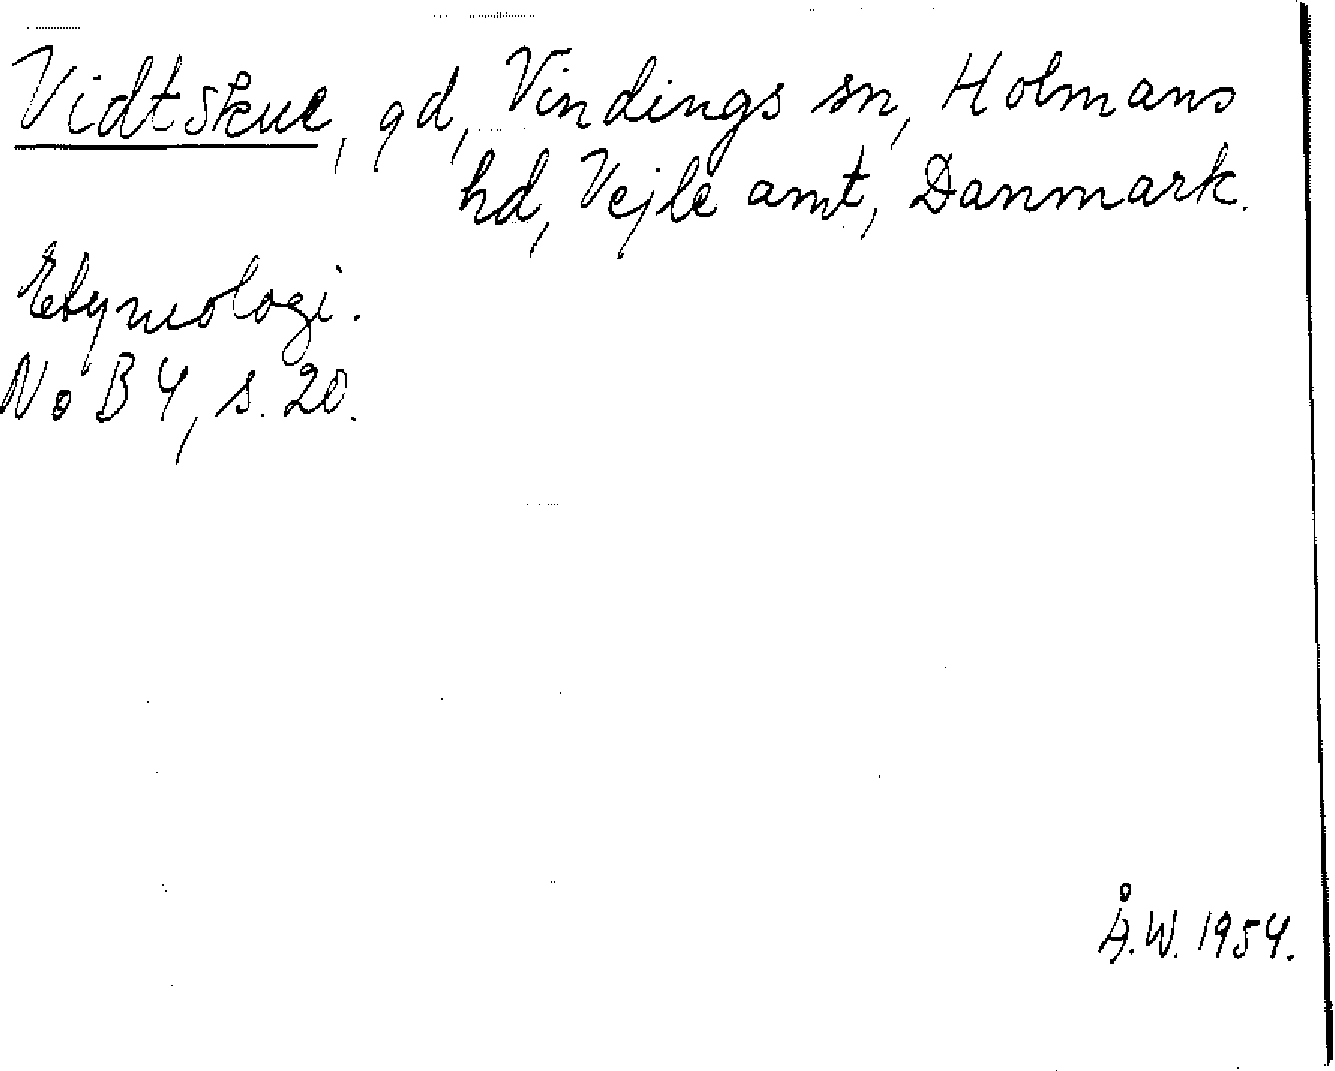 Vidtskue, gd, Vindings sn, Holmans
hd, Vejle amt, Danmark.
Etymologi.
NoB 4, s. 20.
Å.W. 1954.